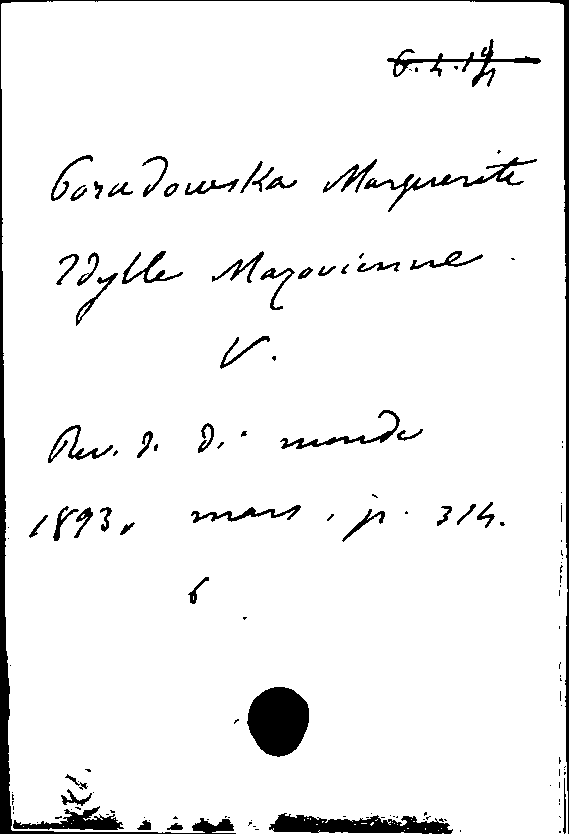 Poradowska Marguerite
Idylle Mazovienne.
V.
Rev. d. d. monde
1893, mars, p. 314.
6